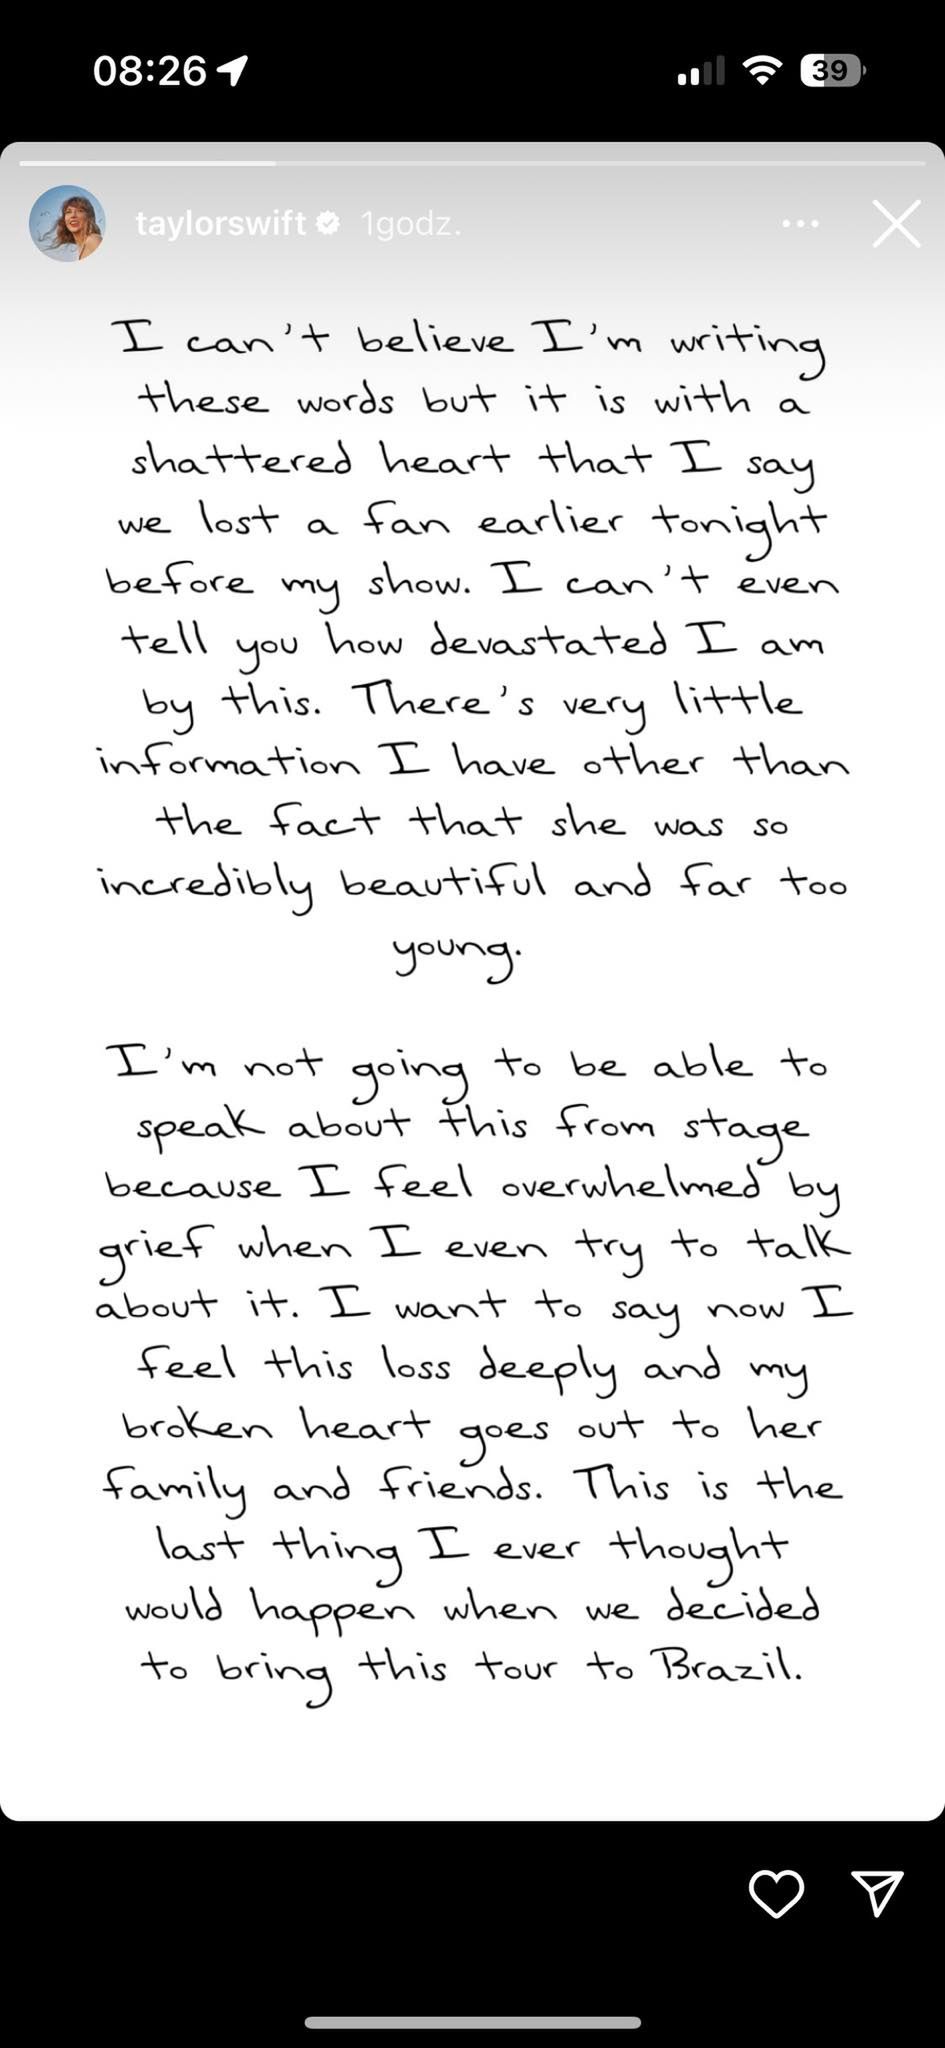 08:26
39
taylorswift 1godz.
I can't believe I'm writing
these words but it is with a
shattered heart that I say
we lost a fan earlier tonight
before my show. I can't even
tell you how devastated I am
by this. There's very little
information I have other than
the fact that she was so
incredibly beautiful and far too
young.
I'm not going to be able to
speak about this from stage
because I feel overwhelmed by
grief when I even try to talk
about it. I want to say now I
feel this loss deeply and my
broken heart goes out to her
family and friends. This is the
last thing I ever thought
would happen when we decided
to bring this tour to Brazil.